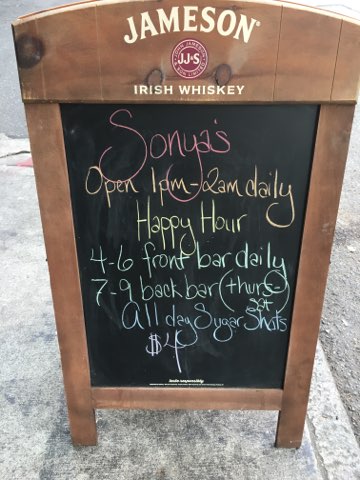 JAMESON
JOHN JAMESON
JJ&S
IRISH WHISKEY
Sonya's
Open 1pm-2am daily
Happy Hour
4-6 front bar daily
7-9 back bar (thurs-
sat
All day Sugar Shots
$4
taste responsibly